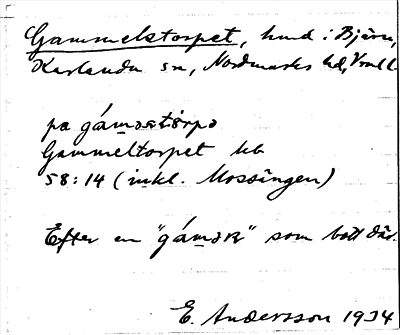 Gammelstorpet, hmd i Bjärn,
Karlanda sn, Nordmarks hd, Vrml.
på gáməstòrpə
Gammeltorpet kb
58:14 (inkl. Mossängen)
Efter en "gáməʀ" som bott där.
E. Andersson 1934